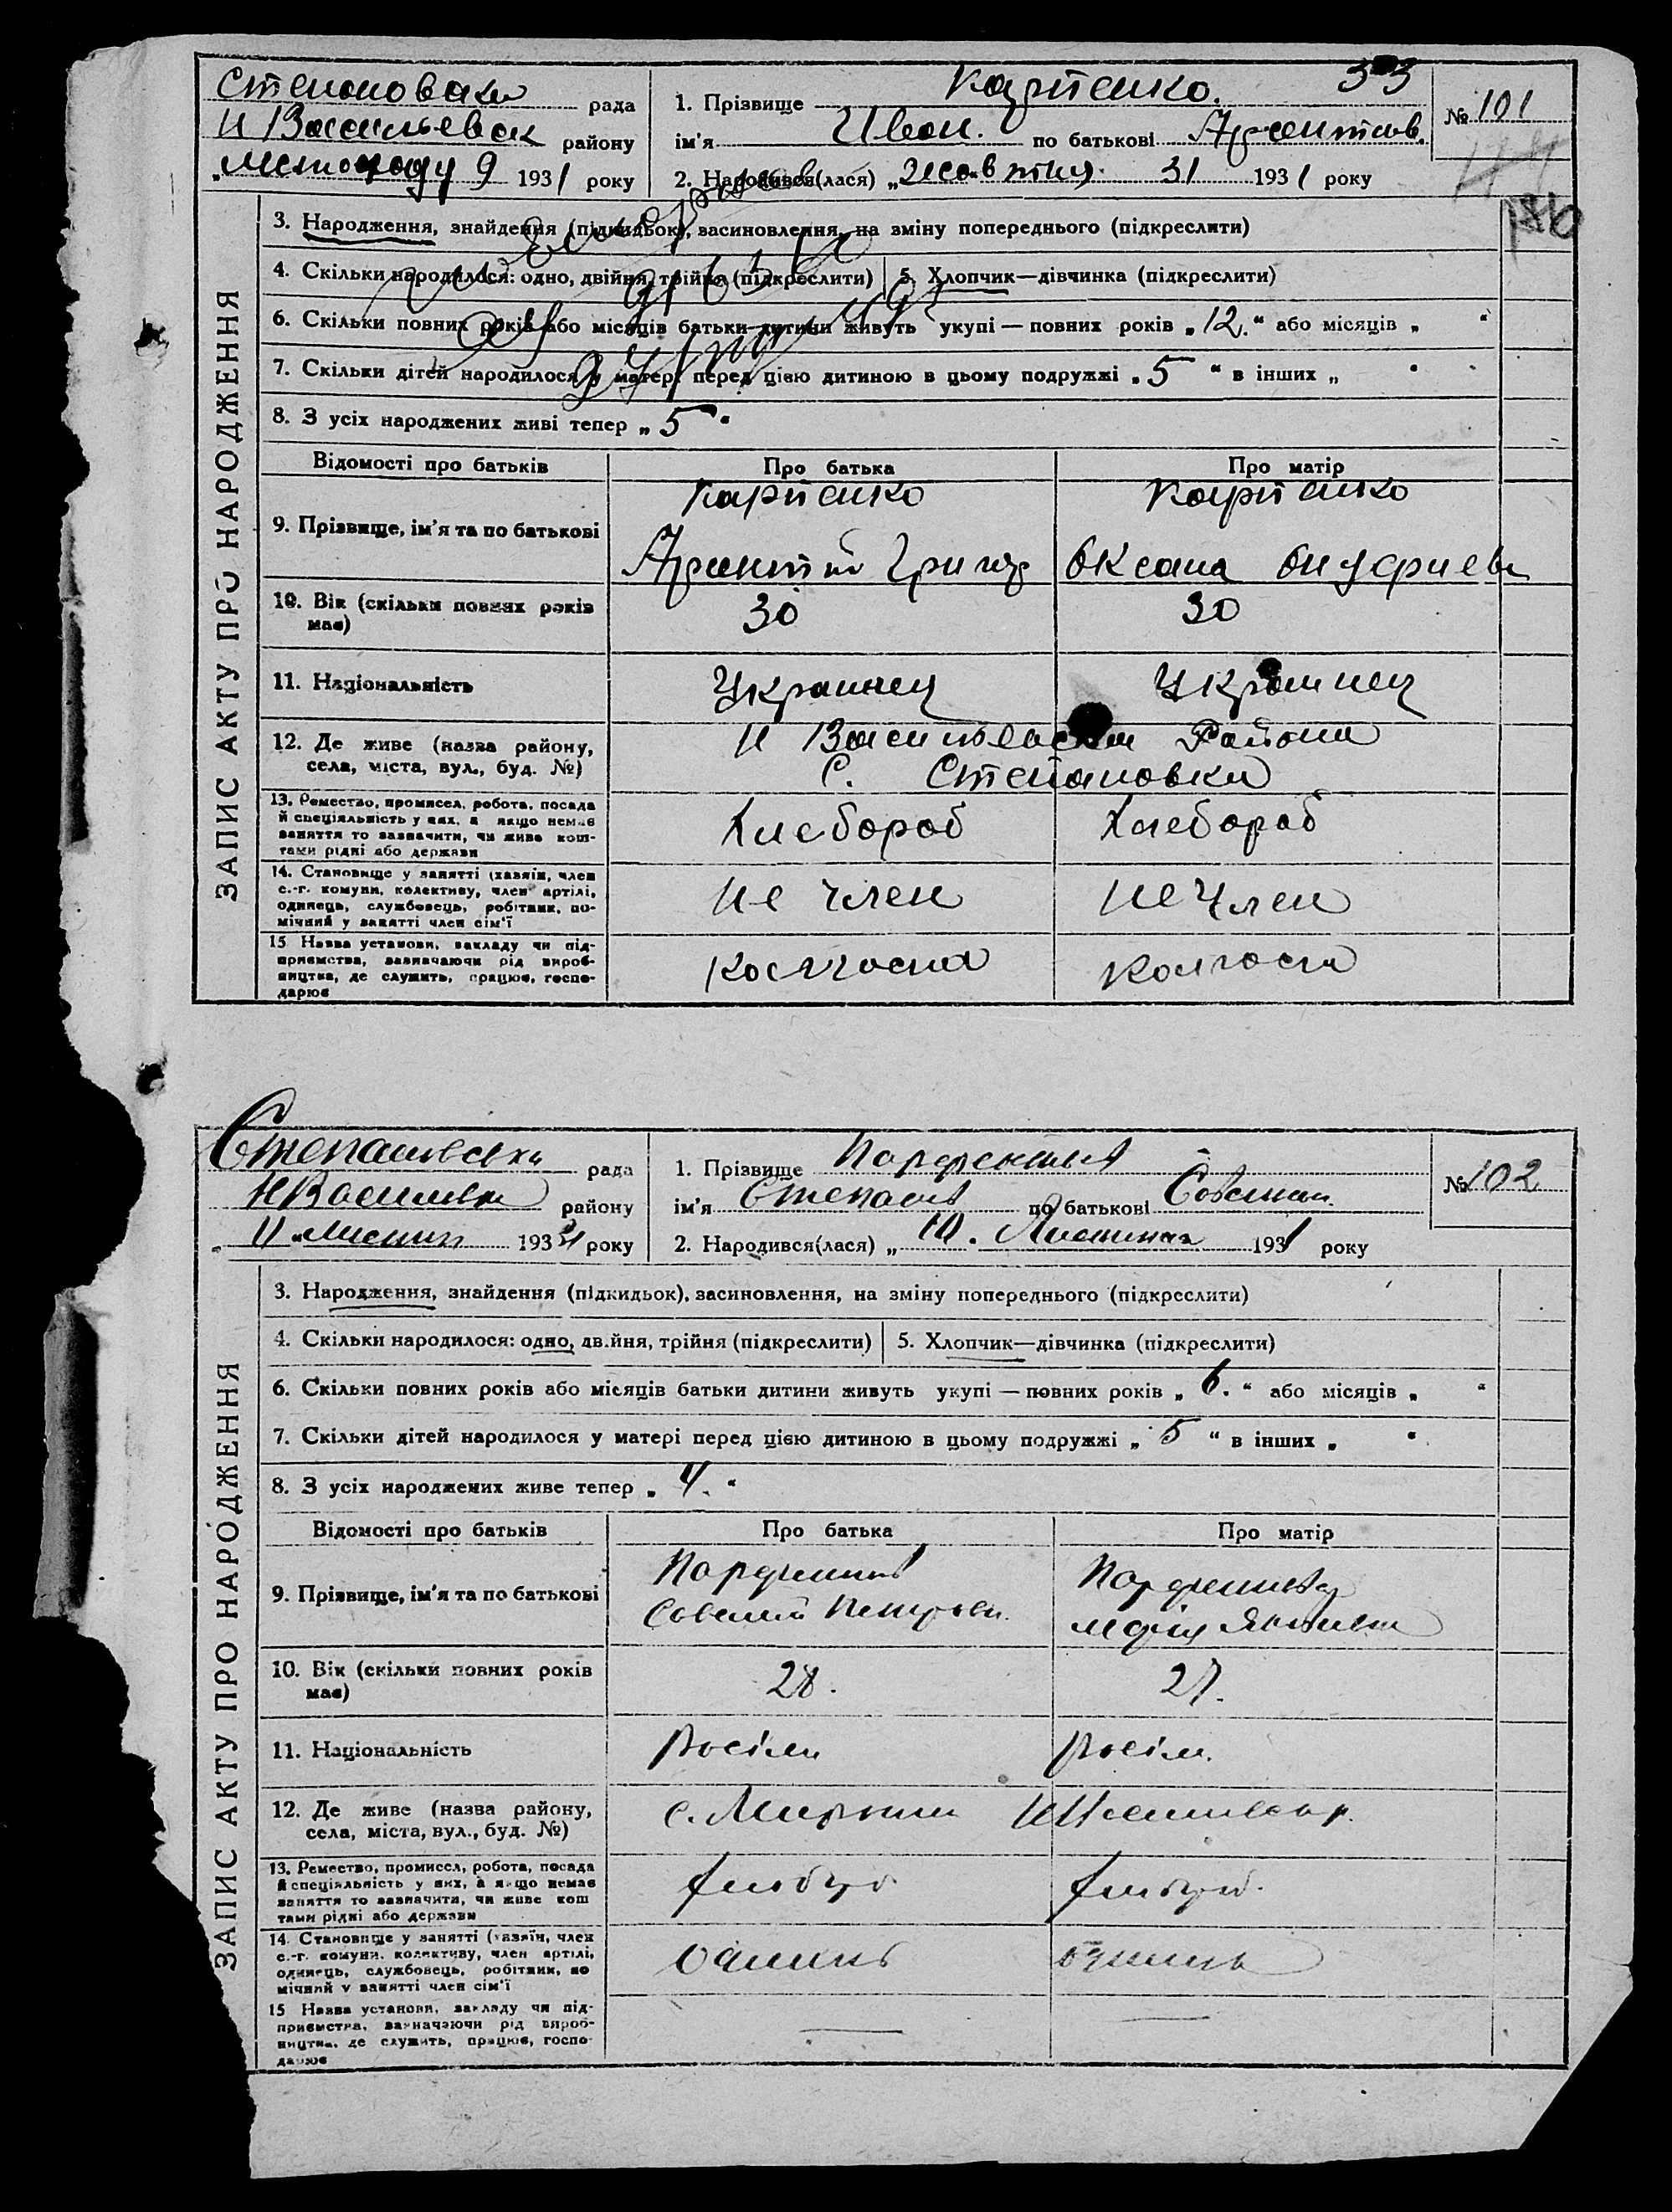 Степановки рада
Н Васильевск району
„листопаду 9 1931 року
1. Прізвище Карпенко. 353
ім'я Иван. по батькові
2. Народився(лася) „жовтня 31 1931 року
№ 101
ЗАПИС АКТУ ПРО НАРОДЖЕННЯ
3. Народження, знайдення (підкидьок), засиновлення, на зміну попереднього (підкреслити)
4. Скільки народилося: одно, двійня, трійня (підкреслити) 5. Хлопчик—дівчинка (підкреслити)
6. Скільки повних років або місяців батьки дитини живуть укупі — повних років „12." або місяців „ "
7. Скільки дітей народилося у матері перед цією дитиною в цьому подружжі „5" в інших „ "
8. З усіх народжених живі тепер „5"
Відомості про батьків Про батька Про матір
Карпенко Карпенко
9. Прізвище, ім'я та по батькові
Григор Оксана Онуфриевн
10. Вік (скільки повних років має) 30 30
11. Національність Украинец Украинец
12. Де живе (назва району, Н Васильевском Района
села, міста, вул., буд. №) С. Степановки
13. Ремество, промисел, робота, посада
й спеціяльність у них, а якщо немає
заняття то зазначити, чи живе кош-
тами рідні або держави
Хлебороб Хлебороб
14. Становище у занятті (хазяїн, член
с.-г. комуни, колективу, член артілі,
одинець, службовець, робітник, по-
мічний у занятті член сім'ї
не член не член
15 Назва установи, закладу чи під-
приємства, зазначаючи рід вироб-
ництва, де служить, працює, госпо-
дарює
колгоспа колгоспа
Степанівська рада
Н Василівка району
„11" листоп 1931 року
1. Прізвище
ім'я Степан по батькові Савелии
2. Народився(лася) „10. Листопад 1931 року
№ 102
ЗАПИС АКТУ ПРО НАРОДЖЕННЯ
3. Народження, знайдення (підкидьок), засиновлення, на зміну попереднього (підкреслити)
4. Скільки народилося: одно, двійня, трійня (підкреслити) 5. Хлопчик—дівчинка (підкреслити)
6. Скільки повних років або місяців батьки дитини живуть укупі — повних років „6." або місяців „ "
7. Скільки дітей народилося у матері перед цією дитиною в цьому подружжі „5" в інших „ "
8. З усіх народжених живе тепер „4."
Відомості про батьків Про батька Про матір
9. Прізвище, ім'я та по батькові
Савелий Петрович
10. Вік (скільки повних років має) 28. 27.
11. Національність Росіян Росіян.
12. Де живе (назва району,
села, міста, вул., буд. №)
13. Ремество, промисел, робота, посада
й спеціяльність у них, а якщо немає
заняття то зазначити, чи живе кош
тами рідні або держави
14. Становище у занятті (хазяїн, член
с.-г. комуни, колективу, член артілі,
одинець, службовець, робітник, по
мічний у занятті член сім'ї
одинець одинець
15 Назва установи, закладу чи під-
приємства, зазначаючи рід вироб-
ництва, де служить, працює, госпо-
дарює